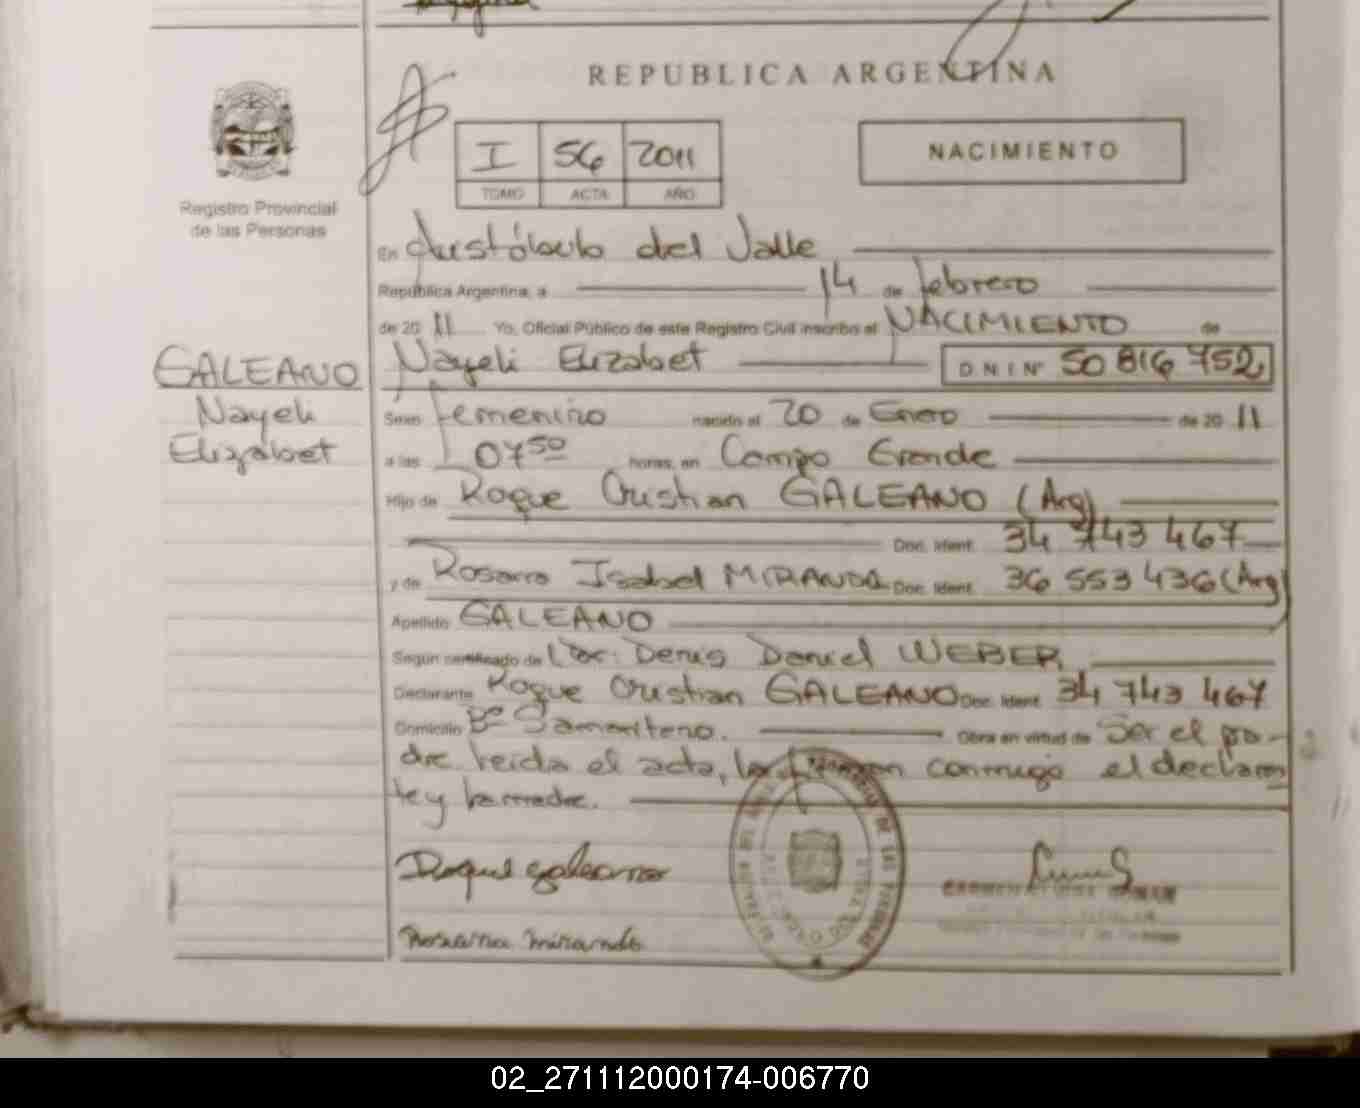 REPUBLICA ARGENTINA
I 56 2011
TOMO ACTA AÑO
NACIMIENTO
Registro Provincial
de las Personas
En Aristóbulo del Valle
República Argentina, a 14 de febrero
de 2011 Yo, Oficial Público de este Registro Civil inscribo el NACIMIENTO de
GALEANO
Nayeli
Elizabet
Nayeli Elizabet DNI Nº 50 816 752
Sexo femenino nacido el 20 de Enero de 2011
a las 07 50 horas, en Campo Grande
Hijo de Roque Cristian GALEANO (Arg)
Doc. Ident. 34 743 467
y de Isabel MIRANDA Doc. Ident. 36 553 436 (Arg)
Apellido GALEANO
Según certificado de Denis Daniel WEBER
Declarante Roque Cristian GALEANO Doc. Ident. 34 743 467
Domicilio Bº Samaritano. Obra en virtud de Ser el pa-
dre leida el acta, la firman conmigo el declaran
te y la madre.
Roque galeano
miranda
02_271112000174-006770